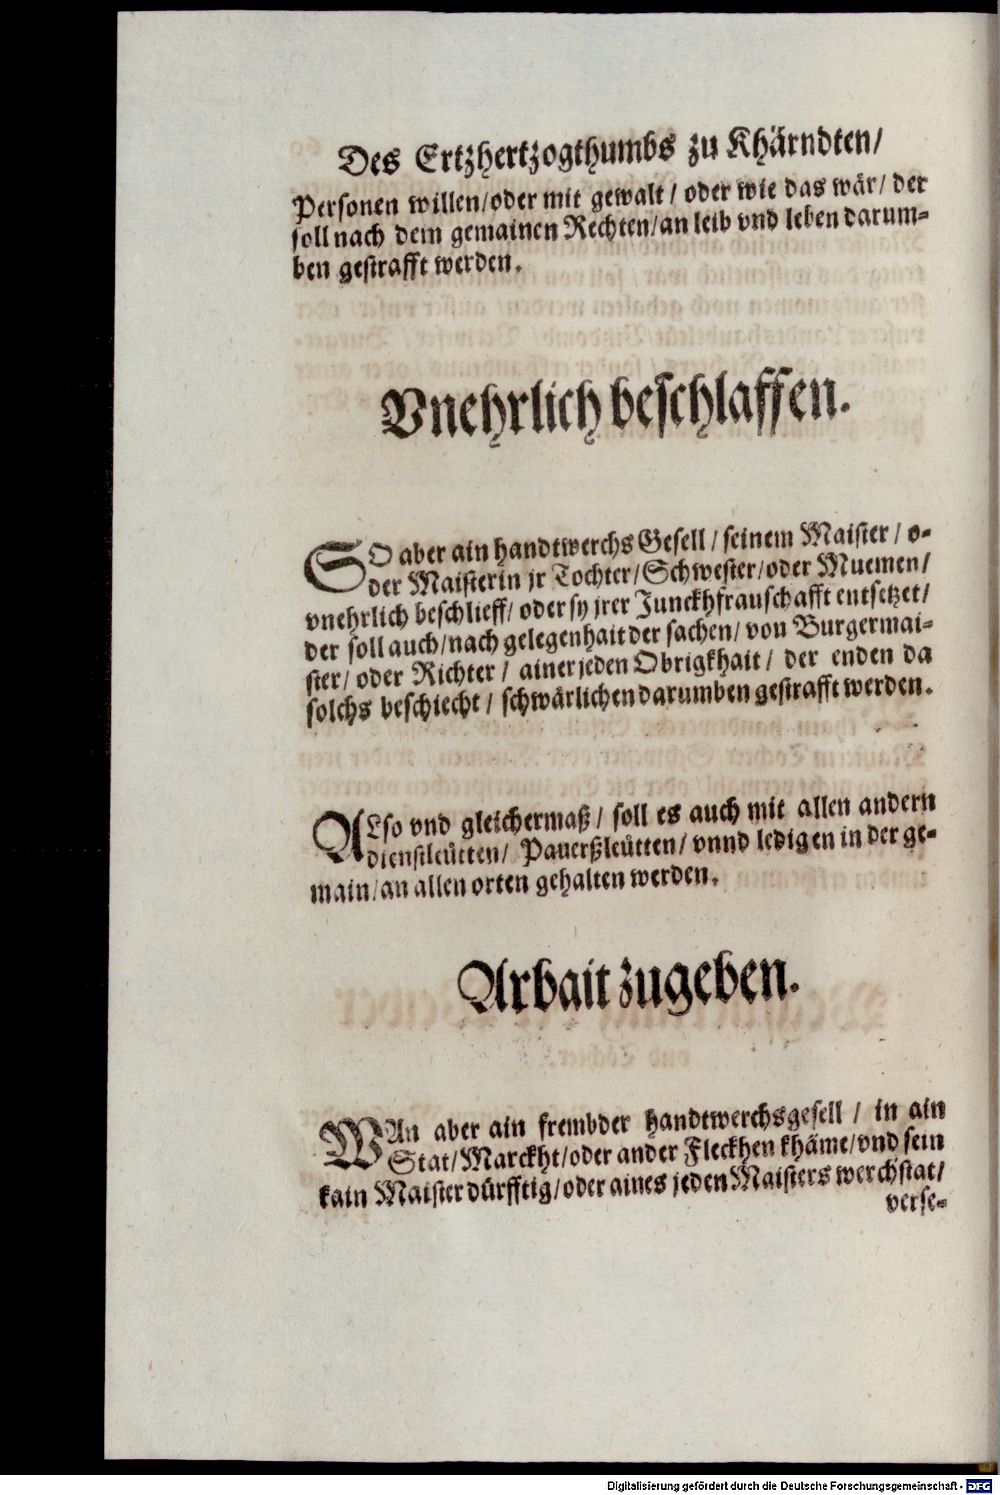 Des Ertzhertzogthumbs zu Khärndten/
Personen willen/oder mit gewalt / oder wie das wär/ der
soll nach dem gemainen Rechten/an leib vnd leben darum-
ben gestrafft werden.
Vnehrlich beschlaffen.
SO aber ain handtwerchs Gesell / seinem Maister / o-
der Maisterin jr Tochter/Schwester/oder Muemen/
vnehrlich beschlieff/ oder sy jrer Junckhfrauschafft entsetzet/
der soll auch/nach gelegenhait der sachen/ von Burgermai-
ster/ oder Richter / ainer jeden Obrigkhait / der enden da
solchs beschiecht / schwärlichen darumben gestrafft werden.
ALso vnd gleichermaß / soll es auch mit allen andern
dienstleütten/ Pauerßleütten/ vnnd ledigen in der ge-
main/an allen orten gehalten werden.
Arbait zugeben.
WAn aber ain frembder handtwerchsgesell / in ain
Stat/Marckht/oder ander Fleckhen khäme/vnd sein
kain Maister dürfftig/oder aines jeden Maisters werchstat/
verse-
Digitalisierung gefördert durch die Deutsche Forschungsgemeinschaft - DFG